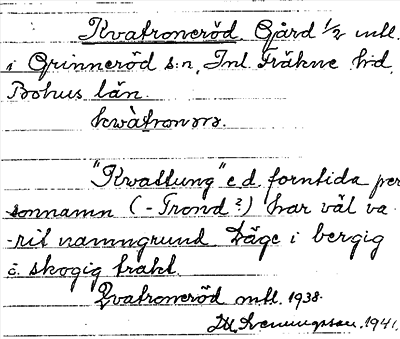 Kvatroneröd. Gård 1/2 mtl.
i Grinneröd s:n, Inl. Fräkne hd,
Bohus län.
kwàtronm.
"Kwattung" e d forntida per
sonnamn (- Trond?) har väl va-
-rit namngrund Läge i bergig
o. skogig trakt.
Qvatroneröd mtl. 1938.
Sveningsson. 1941.